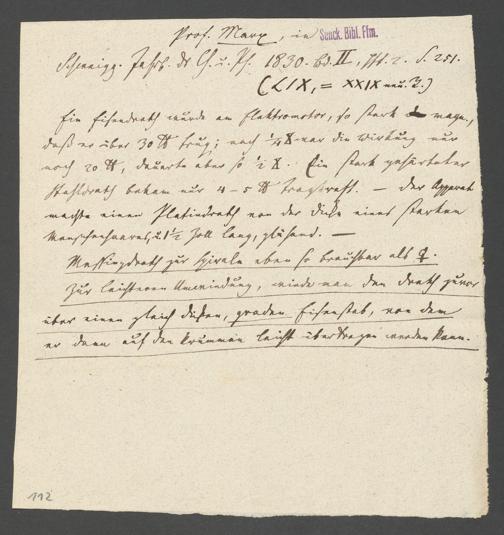 Prof. Marx, in Senck. Bibl. Ffm.
Schweigg. Jahrb. dr Ch. u. Ph. 1830. Bd. II, Hft. 2. S. 251.
(LIX, = XXIX neu. R.)
Ein Eisendrath wurde am Elektromotor, so stark magn.,
daß er über 30 ℔ trug; nach ¼ war die Wirkung nur
noch 20 ℔, dauerte aber so ½. Ein stark gehärteter
Stahldrath bekam nur 4 – 5 ℔ Tragkraft. — Der Apparat
machte einen Platindrath von der Dicke eines starken
Menschenhaares, u. 1½ Zoll lang, glühend. —
Messingdrath zur Spirale eben so brauchbar als ♀.
Zur leichteren Anwendung, winde man den Drath zuvor
über einen gleich dicken, graden Eisenstab, von dem
er dann auf den krummen leicht übertragen werden kann.
112